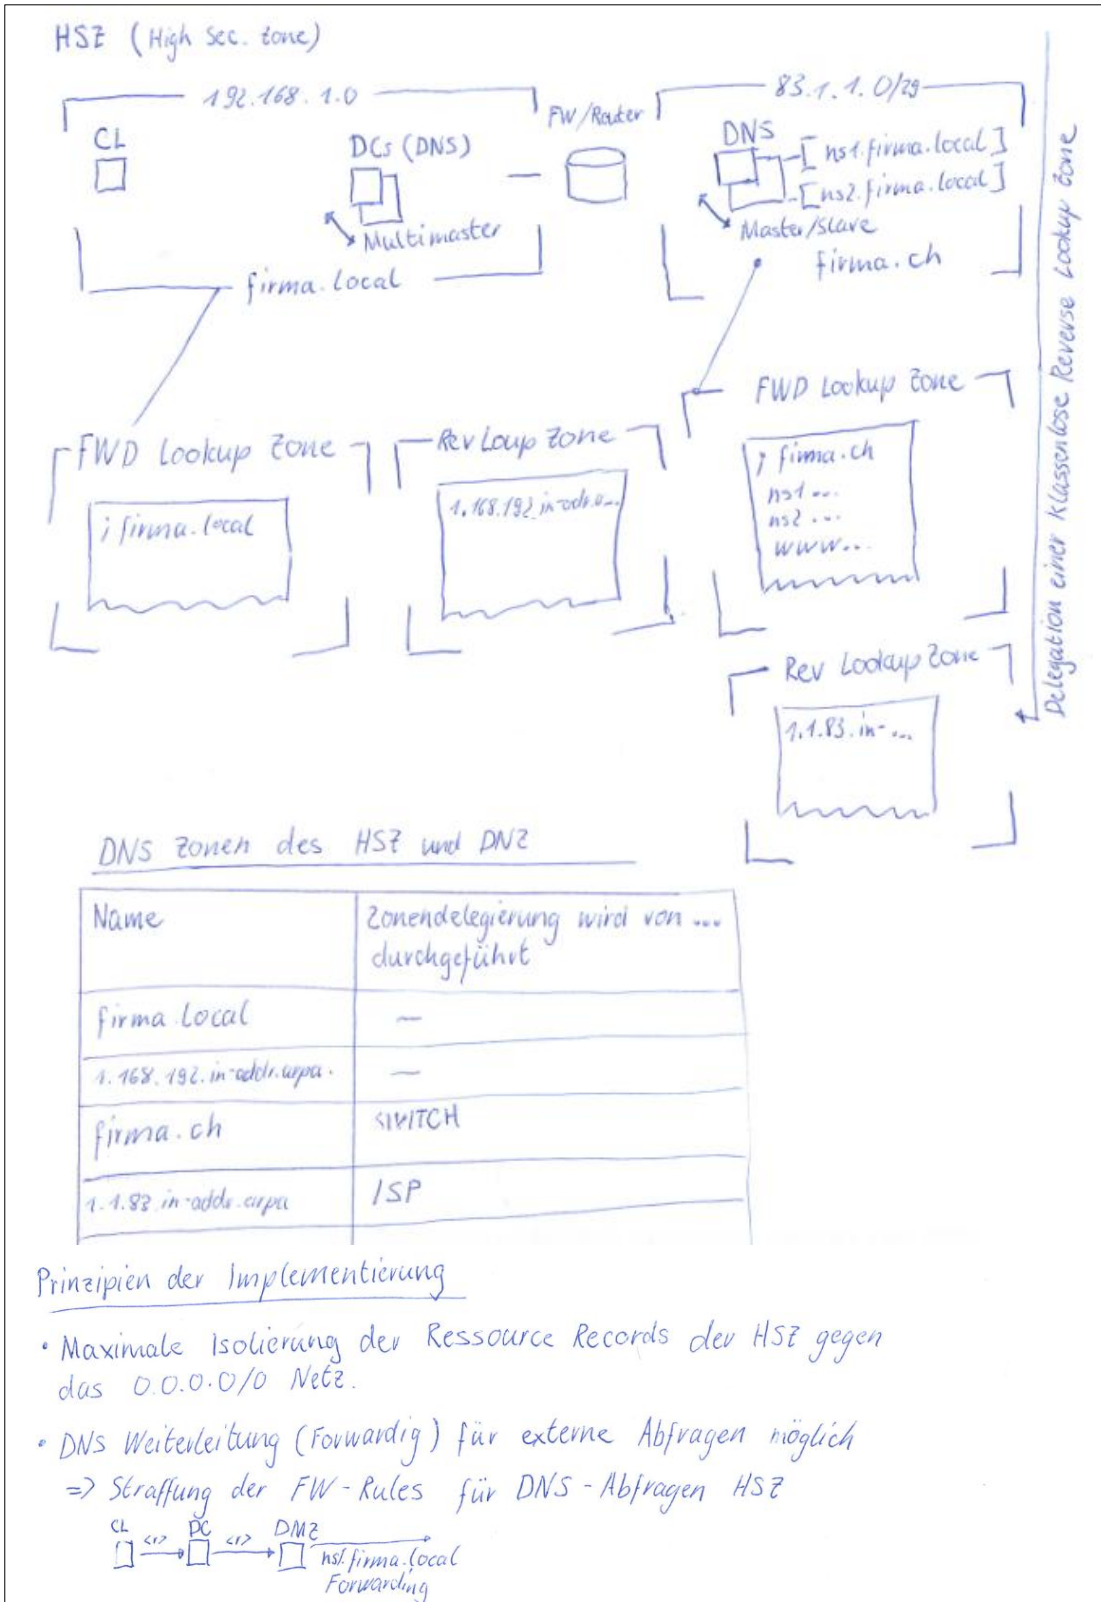 HSZ (High Sec. zone)
192.168.1.0
CL
DCs (DNS)
Multimaster
firma.local
FW/Router
83.1.1.0/29
DNS
[ns1.firma.local]
[ns2.firma.local]
Master/Slave
firma.ch
Delegation einer Klassenlose Reverse Lookup Zone
FWD Lookup Zone
; firma.local
Rev Loup Zone
1.168.192.in-adr.a...
FWD Lookup Zone
; firma.ch
ns1...
ns2...
www...
Rev Lookup Zone
1.1.83.in-...
DNS Zonen des HSZ und DNZ
Name
Zonendelegierung wird von ...
durchgeführt
firma.local
—
1.168.192.in-addr.arpa.
—
firma.ch
SWITCH
1.1.83.in-addr.arpa
ISP
Prinzipien der Implementierung
• Maximale Isolierung der Ressource Records der HSZ gegen
das 0.0.0.0/0 Netz.
• DNS Weiterleitung (Forwardig) für externe Abfragen möglich
=> Straffung der FW-Rules für DNS-Abfragen HSZ
CL <r> DC <r> DMZ
ns1.firma.local
Forwarding